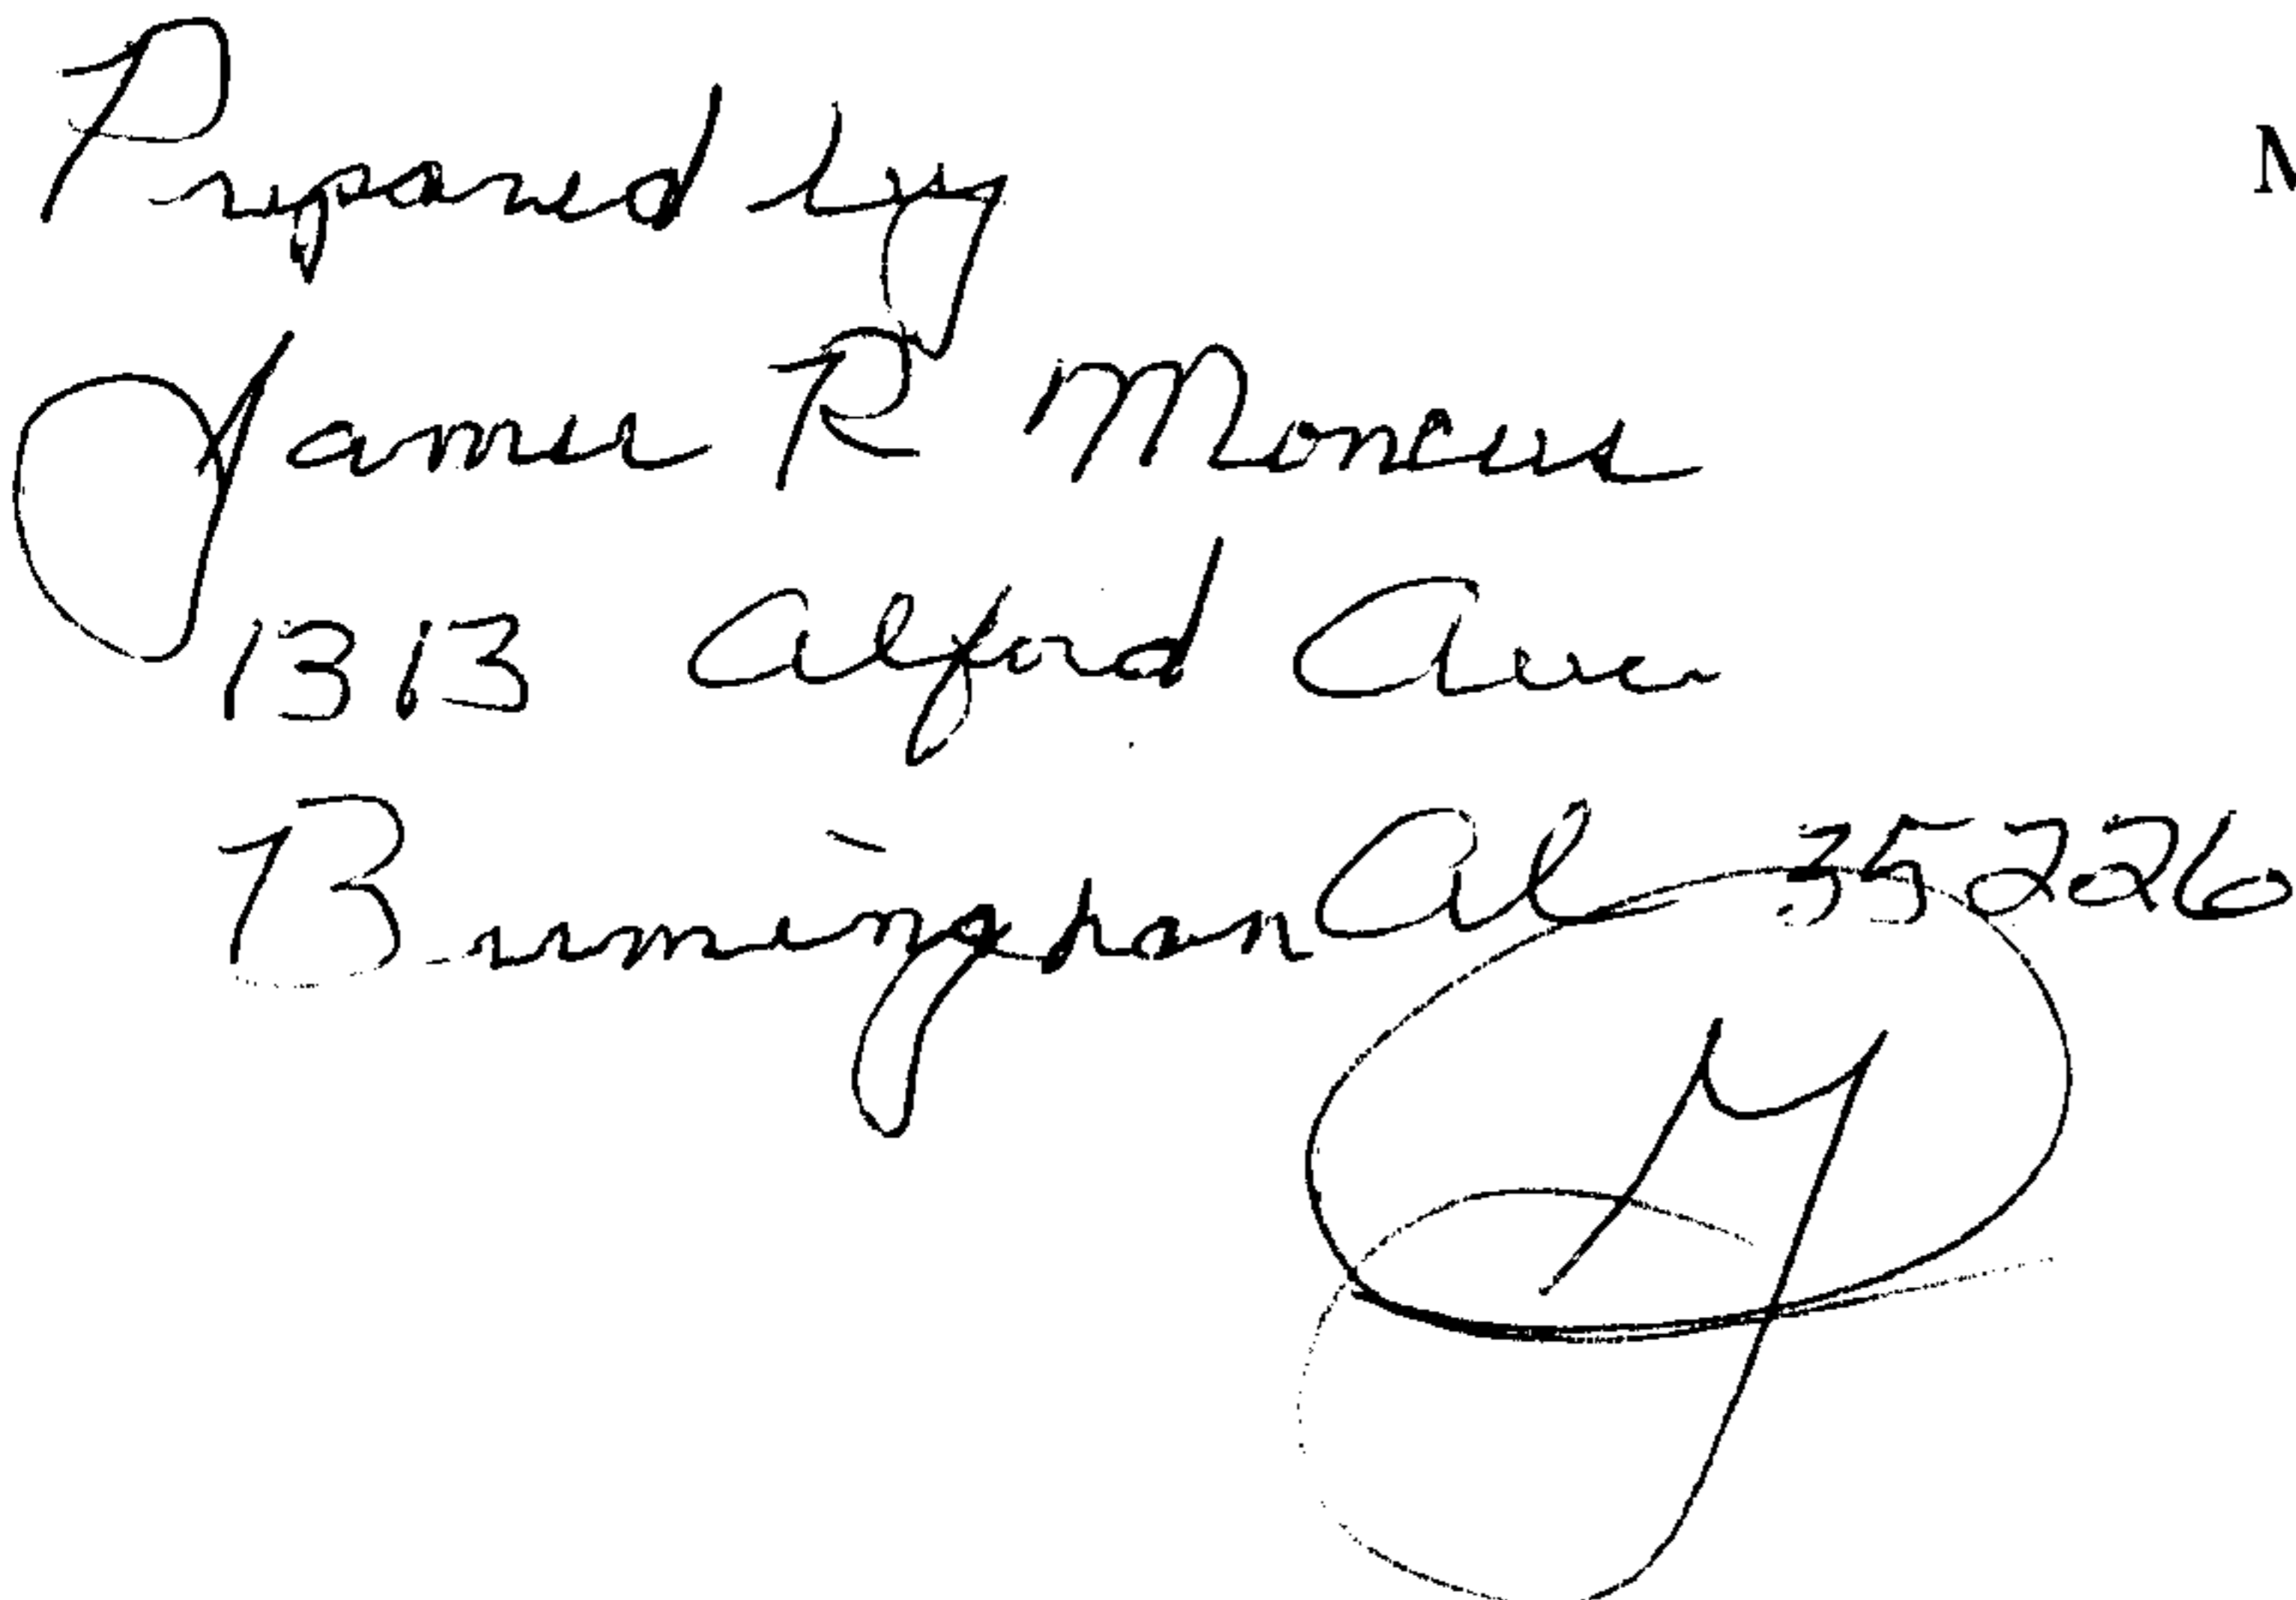 Prepared by
James R Moncus
1313 Alford Ave
Birmingham Al 35226